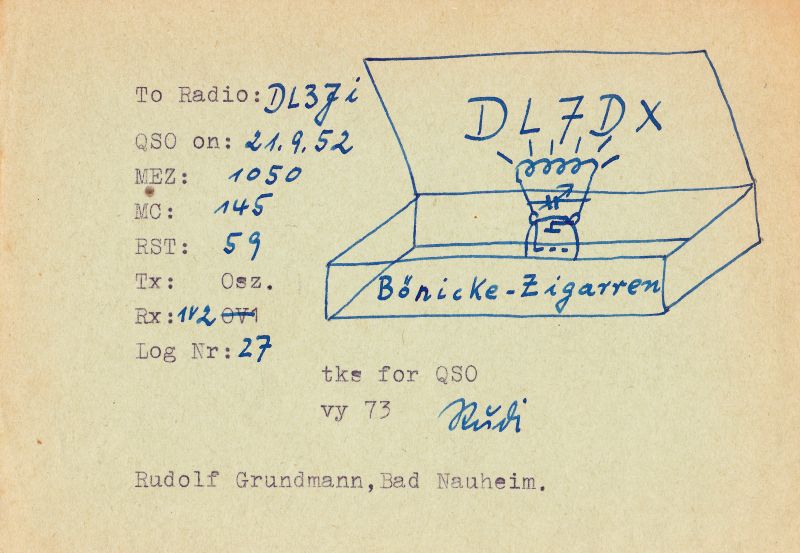 To Radio: DL3Ji
QSO on: 21.9.52
MEZ: 1050
MC: 145
RST: 59
Tx: Osz.
Rx: 1V2 OV1
Log Nr: 27
DL7DX
Bönicke-Zigarren
tks for QSO
vy 73 Rudi
Rudolf Grundmann, Bad Nauheim.